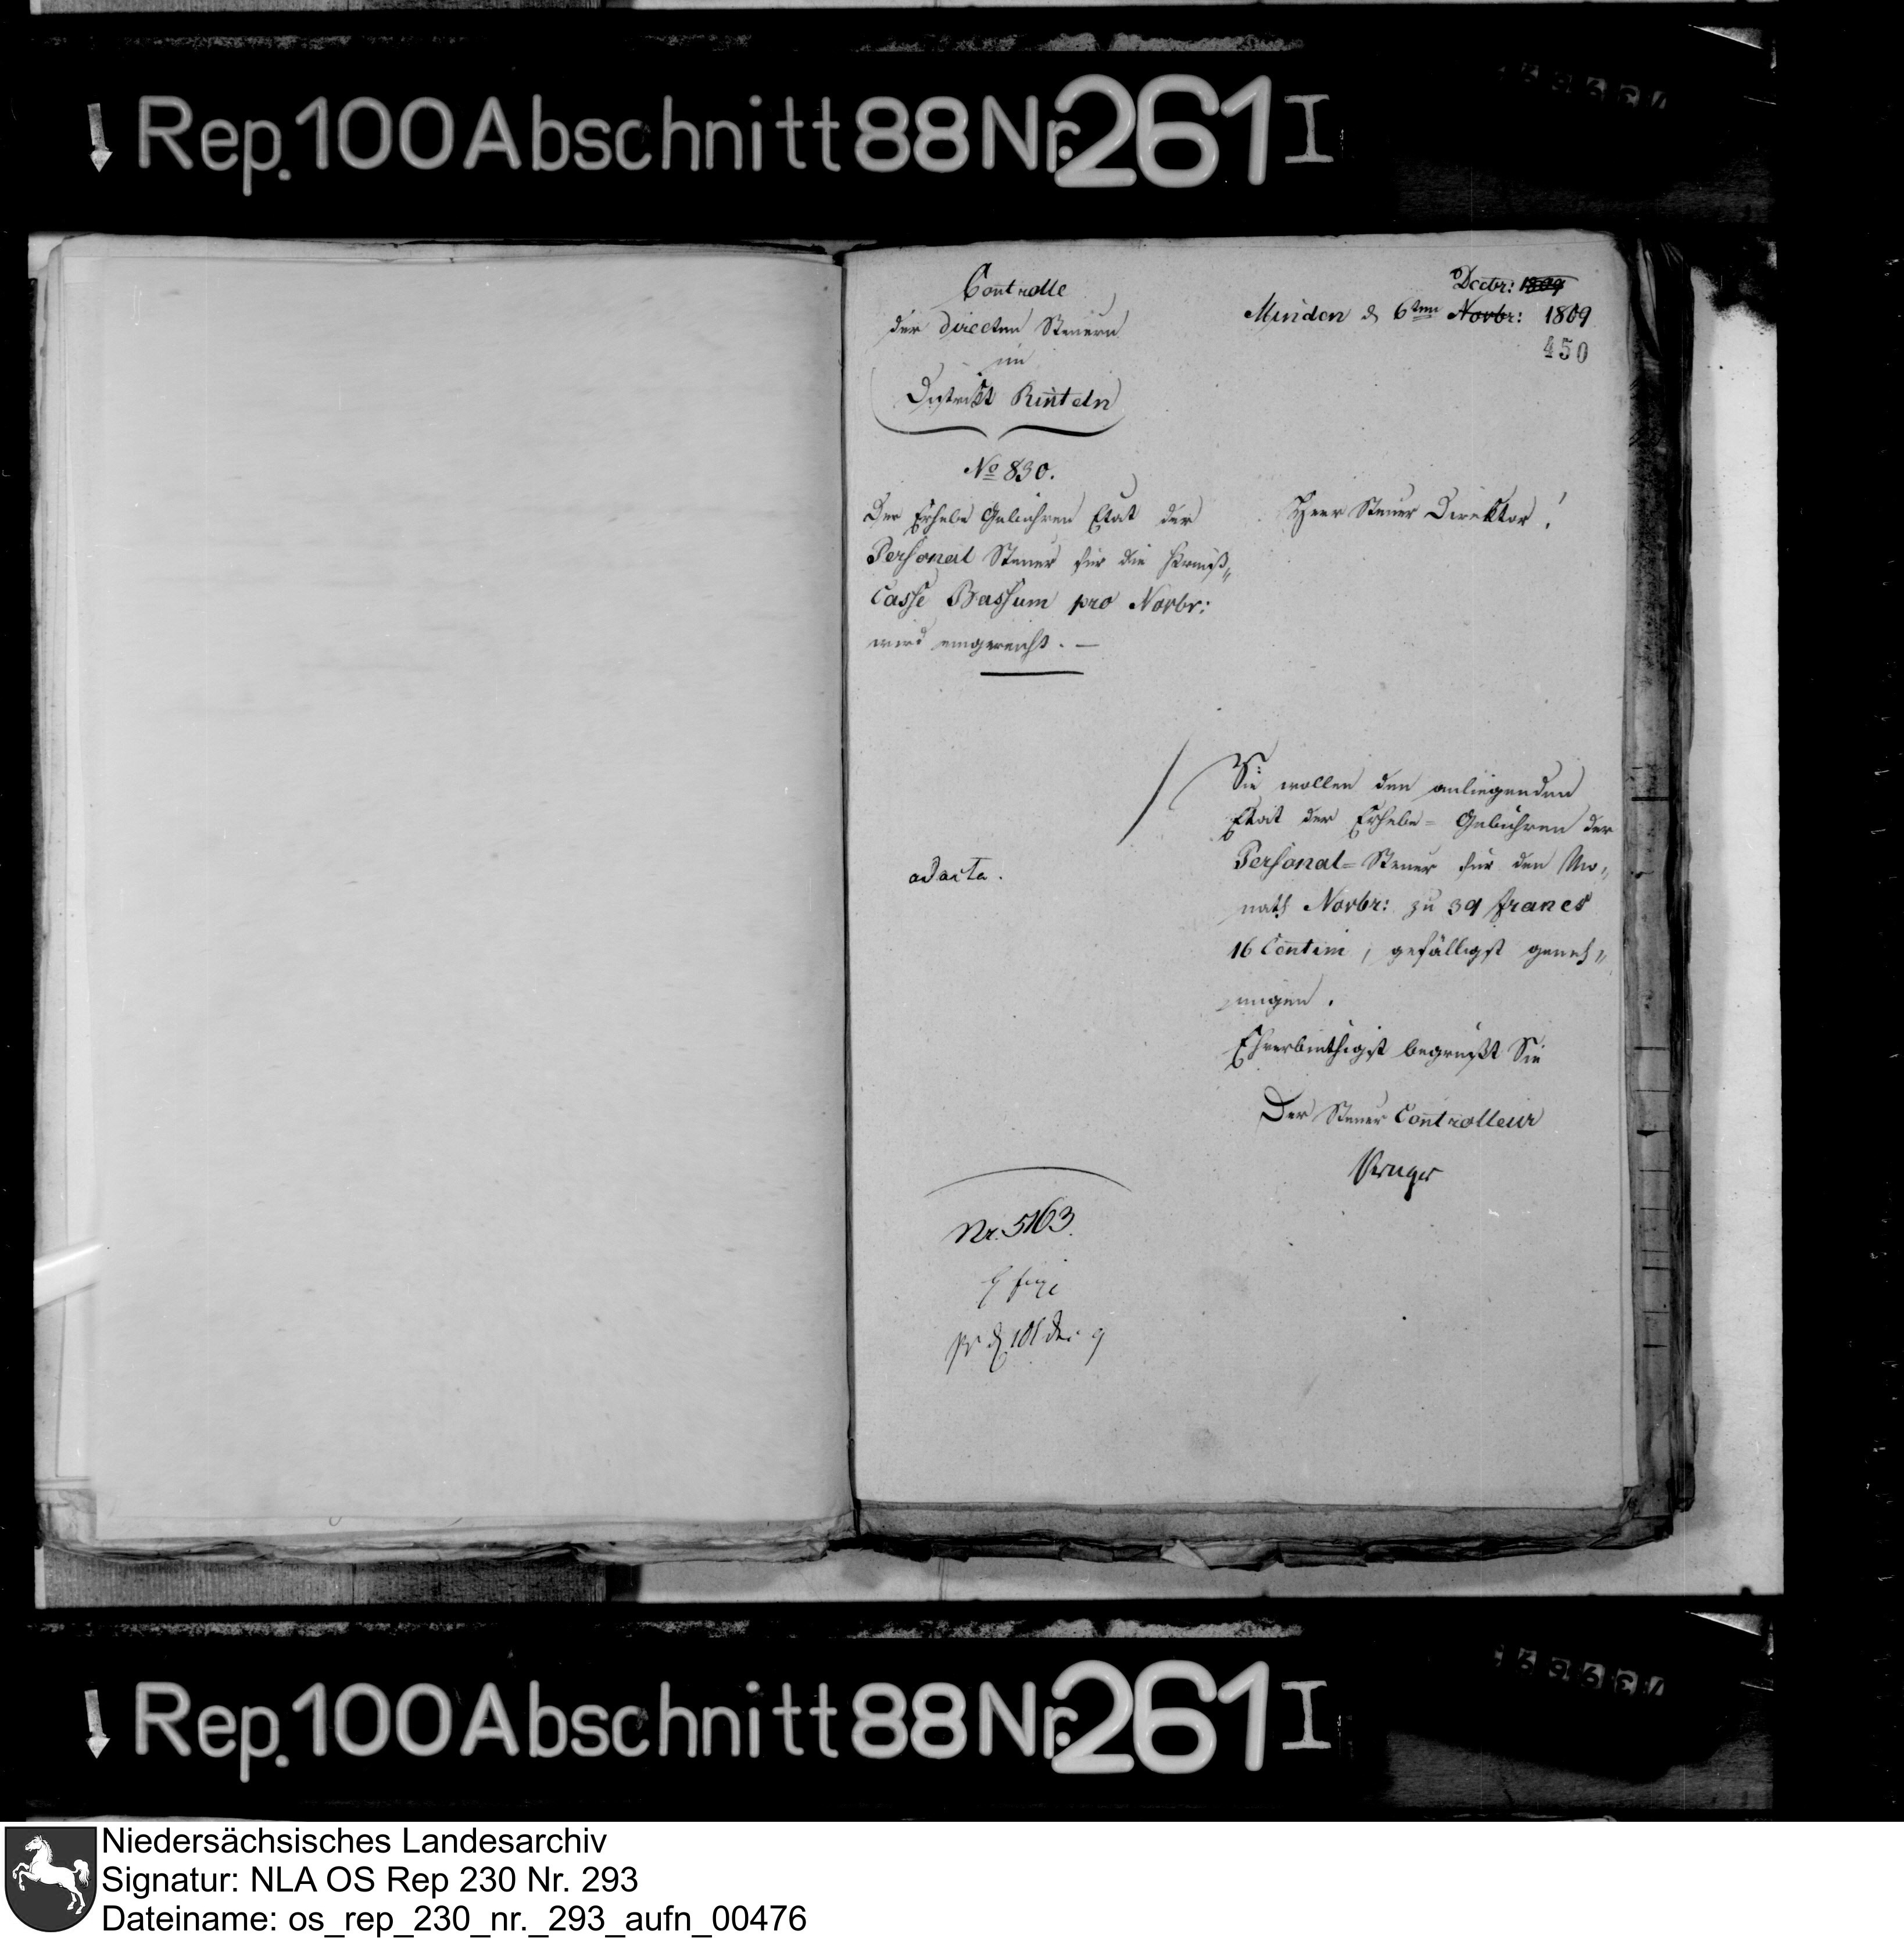 Rep. 100 Abschnitt 88 Nr. 261 I
Controlle
der directen Steuern
im
District Rinteln
Decbr: 1809
Minden d 6ten Novbr: 1809
450
No 830.
Der Erhebe Gebühren Etat der
Personal Steuer für die Kreiß„
Casse Bassum pro Novbr:
wird eingereicht. —
Herr Steuer Direktor!
Sie wollen den anliegenden
Etat der Erhebe-Gebühren der
Personal-Steuer für den Mo„
nath Novbr: zu 39 francs
16 Centim, gefälligst geneh„
migen.
Ehrerbiethigst begrüßt Sie
Der Steuer Controlleur
Kruger
ad acta.
Nr. 5163.
Rep. 100 Abschnitt 88 Nr. 261 I
Niedersächsisches Landesarchiv
Signatur: NLA OS Rep 230 Nr. 293
Dateiname: os_rep_230_nr._293_aufn_00476